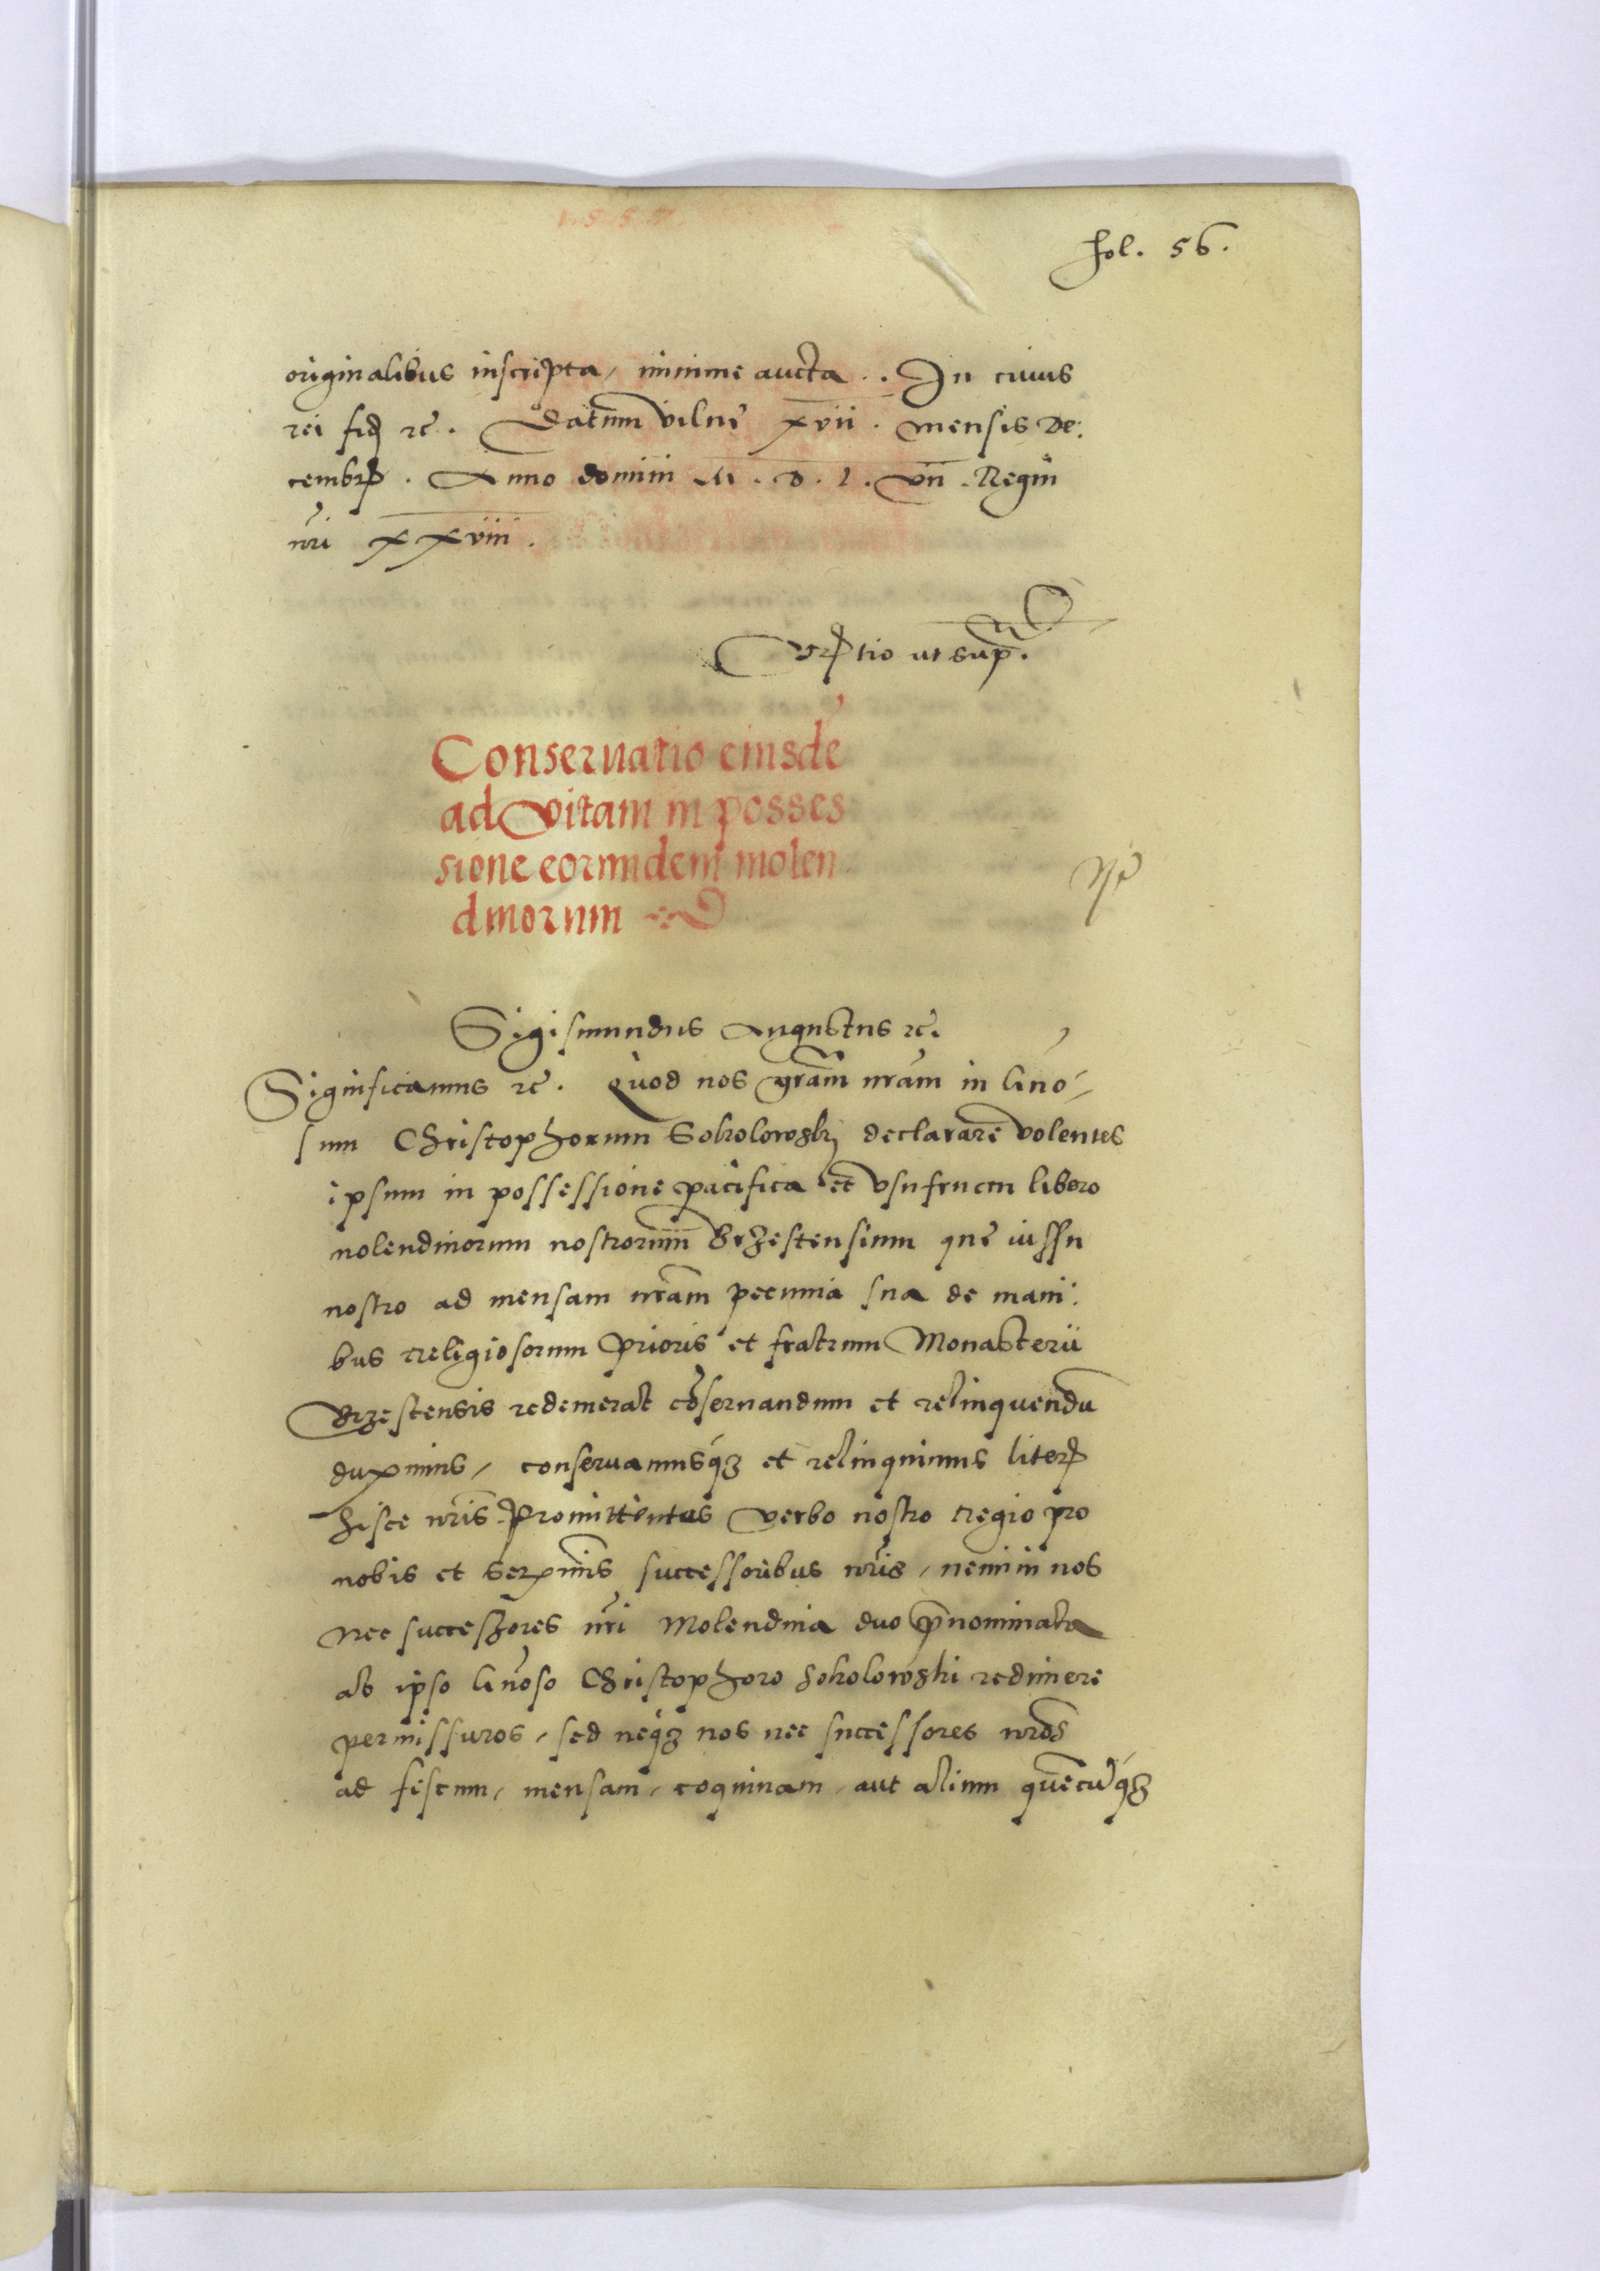 fol. 56.
originalibus inscripta, minime aucta. . In cuius
rei fid etc. Datum Vilne xvii. mensis De:
cembr. Anno domini M. D. L. vii. Regni
nri xxviii.
ut sup.
Conservatio eiusdē
ad vitam in posses
sione eorundem molen
dinorum
Sigismundus Augustus etc.
Significamus etc. Quod nos grām nrām in Gnō,
sum Christophorum Sokolowski declarare volentes
ipsum in possessione pacifica et usufructu libero
molendinorum nostrorum Brzestensium que iussu
nostro ad mensam nrām pecunia sua de mani:
bus religiosorum Prioris et fratrum Monasterii
Brzestensis redemerat cōservandum et relinquendū
duximus, conservamusq₃ et relinquimus liter
hisce nrīs. Promittentes verbo nostro regio pro
nobis et serxmis successoribus nrīs, nemini nos
nec successores nrī Molendina duo p̄nominata
ab ipso Gnōso Christophoro Sokolowski redimere
permissuros, sed neq₃ nos nec successores nrōs
ad fiscum, mensam, coquinam, aut alium quēcūq₃